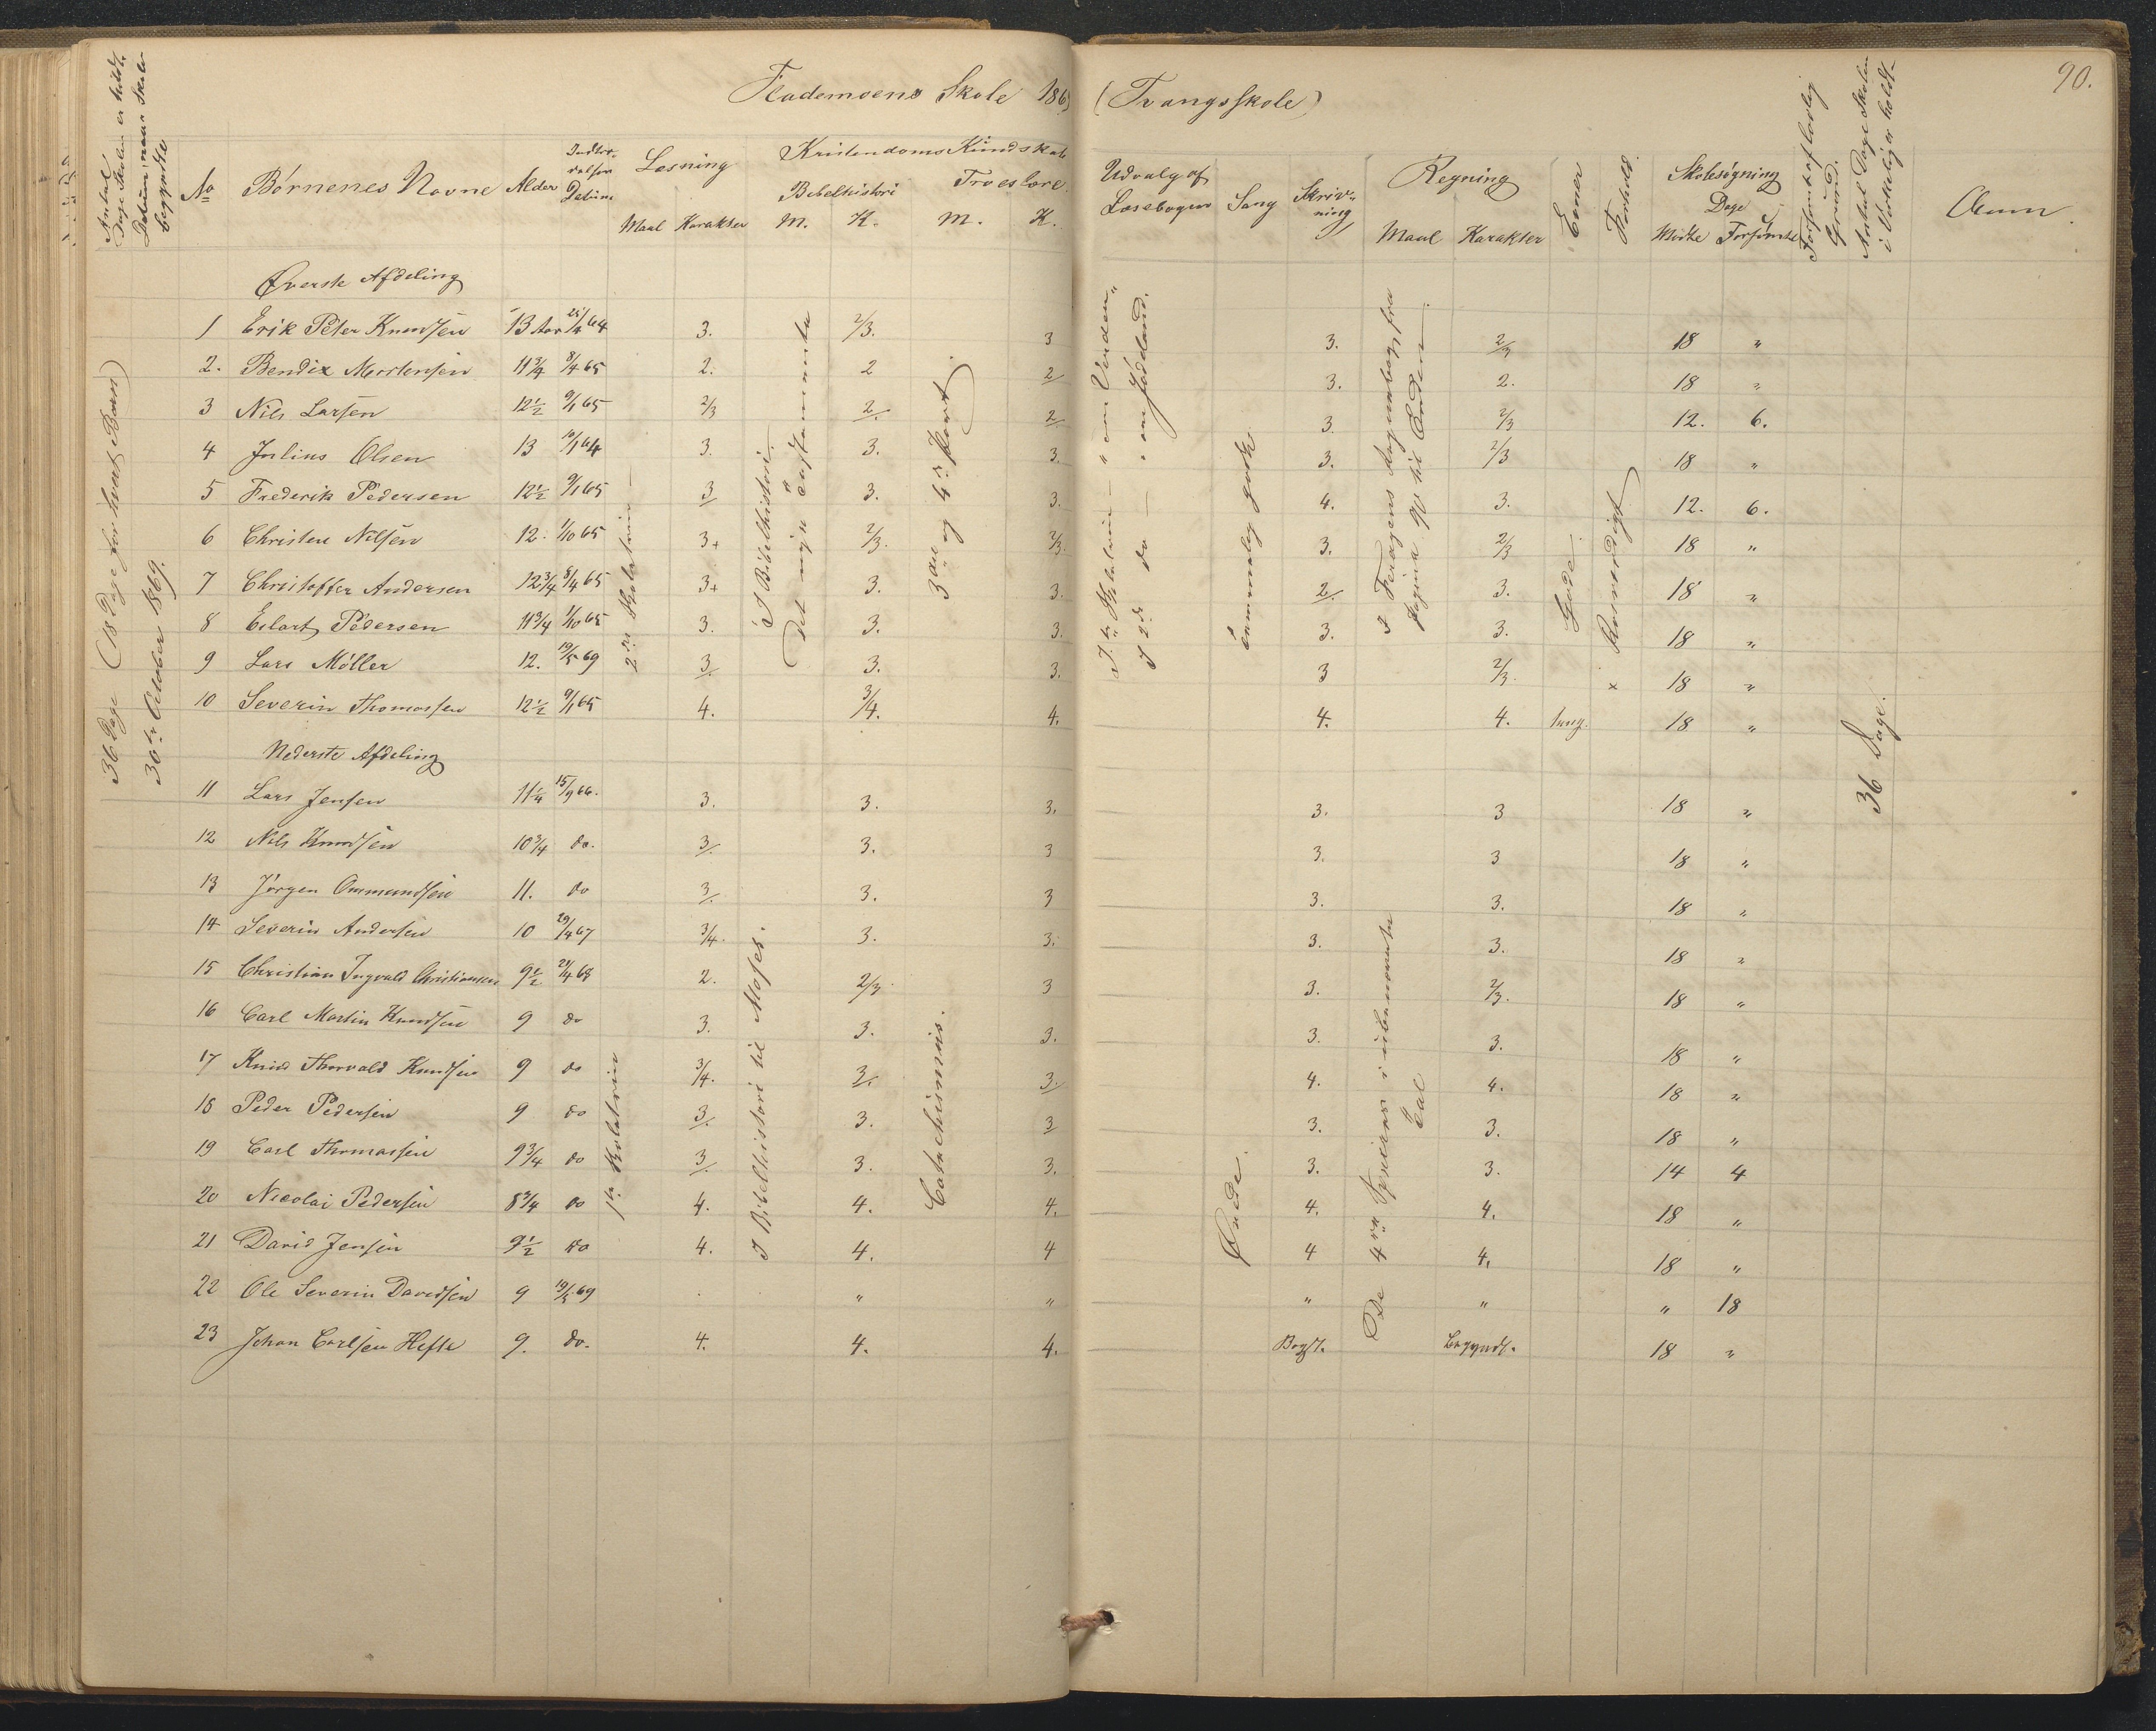 Flademoens Skole 1869 (Tvangsskole)
90.
Antal Dage Skolen er holdt.
Datum, naar Skolen begyndte
No
Børnenes Navne
Alder
Indtrædelses Datum
Læsning
Maal Karakter
Kristendoms Kundskab
Bibelhistori
M. K.
Troeslære
M. K.
Udvalg af Læsebogen
Sang
Skrivning
Regning
Maal Karakter
Evner
Forhold
Skolesøgning
Dage
Mødte Forsømte
Forsømt af lovlig Grund.
Antal Dage Skolen i Virkelighed er holdt
Anm.
36 Dage (18 Dage for hvert Barn)
30te October 1869.
Øverste Afdeling
1 Erik Peter Knudsen 13 Aar 25/4 64 3. 2/3. 3 3. 2/3 18 "
2. Bendix Mortensen 11 3/4 8/4 65 2. 2 2 3. 2. 18 "
3 Nils Larsen 12 1/2 9/1 65 2/3 2. 2 3 2/3 12. 6.
4 Julius Olsen 13 10/1 64 3. 3. 3. 3. 2/3 18 "
5 Frederik Pedersen 12 1/2 9/1 65 3 3. 3. 4. 3. 12. 6.
6 Christen Nilsen 12. 1/10 65 3+ 2/3. 2/3. 3. 2/3 18 "
7 Christoffer Andersen 12 3/4 8/4 65 3+ 3. 3. 2. 3. 18 "
8 Edart Pedersen 11 3/4 1/10 65 3. 3. 3. 3. 3. 18 "
9 Lars Møller 12. 19/5 69 3. 3. 3. 3 2/3. x 18 "
10 Severin Thomassen 12 1/2 9/1 65 4. 3/4. 4. 4. 4. tung. 18 "
2den Skoletrin
I Bibelhistori
Det nye Testamente
3die og 4de Part.
I 2de do
Temmelig godt
Pagina 90 til Enden
Gode
Roesværdigt
36 Dage.
Nederste Afdeling
11 Lars Jensen 11 1/4 15/9 66. 3. 3. 3. 3. 3 18 "
12 Nils Knudsen 10 3/4 do. 3. 3. 3 3. 3 18 "
13 Jørgen Ommundsen 11. do 3. 3. 3 3. 3. 18 "
14 Severin Andersen 10 29/4 67 3/4. 3. 3. 3. 3. 18 "
15 Christian Ingvald Christiansen 9 1/2 24/4 68 2. 2/3. 3 3. 2/3. 18 "
16 Carl Martin Knudsen 9 do 3. 3. 3. 3. 3. 18 "
17 Knud Thorvald Knudsen 9 do 3/4. 3. 3. 4. 4. 18 "
18 Peder Pedersen 9 do 3. 3. 3 3. 3. 18 "
19 Carl Thomassen 9 3/4 do 3. 3. 3. 3. 3. 14 4
20 Nicolai Pedersen 8 3/4 do 4. 4. 4. 4. 4. 18 "
21 David Jensen 9 1/2 do 4. 4. 4 4 4. 18 "
22 Ole Severin Davidsen 9 19/5 69 . " " " " " 18
23 Johan Carlsen Hefte 9. do. 4. 4. 4. Begt. begyndt. 18 "
1ste Skoletrin
I Bibelhistori til Moses.
Catechismus.
De 4re Specier i ubenævnte Tal